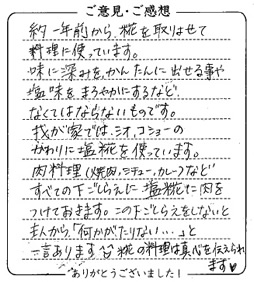 ご意見・ご感想
約一年前から、糀を取りよせて
料理に使っています。
味に深みを、かんたんに出せる事や
塩味を、まろやかにするなど、
なくてはならないものです。
我が家では、シオ、コショーの
かわりに塩糀を使っています。
肉料理(焼肉、シチュー、カレー)など
すべての下ごしらえに塩糀に肉を
つけておきます。この下ごしらえをしないと
主人から「何かがたりない・・・」と
一言あります 糀の料理は真心を伝えられ
ます♥
ありがとうございました!